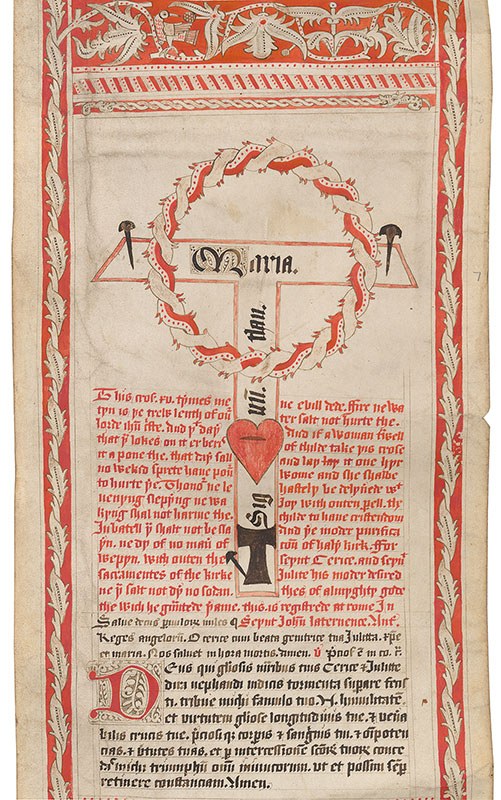 Maria.
Sig nū. tau.
This cros. xv. tymes me
tyn is ye trew lenth of our
lorde ihū criste. And yt day
that yu lokes on it er beres
it a pone the. that day sall
no wekid sprete haue pour
to hurte ye. Thoner ne le
uenyng slepyng ne wa
kyng shal not harme the.
In batell yu shalt not be sla
yn. ne dy of no man of
weppyn. with outen the
sacramentes of the kirke
ne yu salt not dy no sodan
ne evill dede. ffire ne wa
ter salt not hurte the.
And if a woman
of childe take yis crose
and lay lay it one hyr
wome and she shalbe
hastely be wt
Joy with outen perll. the
childe to haue cristendom
and ye moder purifica
cōn of haly kirk. ffor
seynt Cerice. and seynt
Iulite his moder desired
thes of almyghty gode
the wich he graunted yame. this is registrede at rome In
Salue decus paruulorū miles Seynt Iohn̄ laterence. Ant̄.
Reges angelorū. O cerice cum beata genitrice tua Iulitta. xp̄e
et maria. Nos saluet in hora mortis. Amen.
Deus qui gliosis uiribus tuis Cerice & Iulitte
dira nephandi iudicis tormenta supare fecis
ti. tribue michi famulo tuo. N. humilitatē.
et virtutem gliose longitudinis tue. & uen̄a
bilis crucis tue. p̄ciosiq̨ corpis & sanguis tui. & om̄poten
cias. & v̄tutes tuas. et p̱ intercessionē scōꝝ tuoꝝ conce
das michi triumphū om̄ inimicorum. vt et possim semp̄
retinere constanciam. Amen.